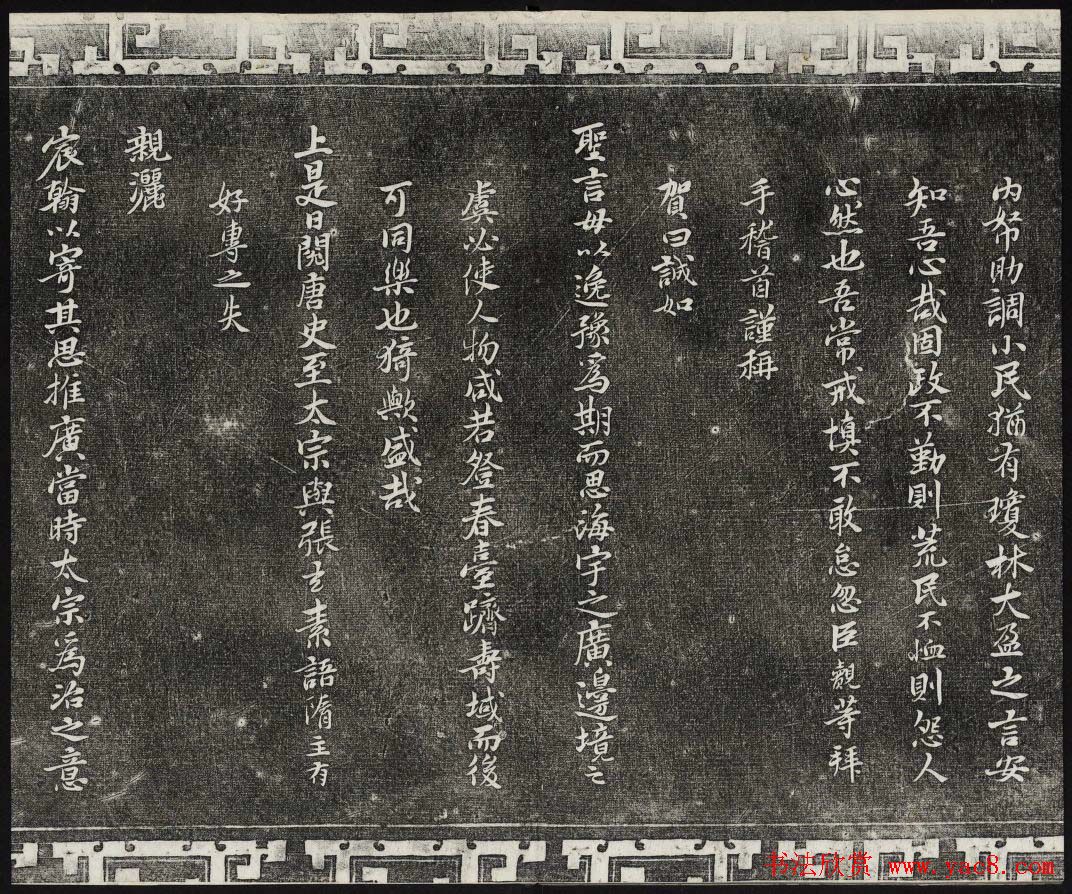 內帑助調小民猶有瓊林大盈之言安
知吾心哉固政不勤則荒民不恤則怨人
心然也吾常戒慎不敢怠忽臣觀等拜
手稽首謹稱
賀曰誠如
聖言毋以逸豫爲期而思海宇之廣邊境之
虞必使人物咸若登春臺躋壽域而後
可同樂也猗歟盛哉
上是日閱唐史至太宗與張玄素語隋主有
好專之失
親灑
宸翰以寄其思推廣當時太宗爲治之意
书法欣赏 www.yac8.com